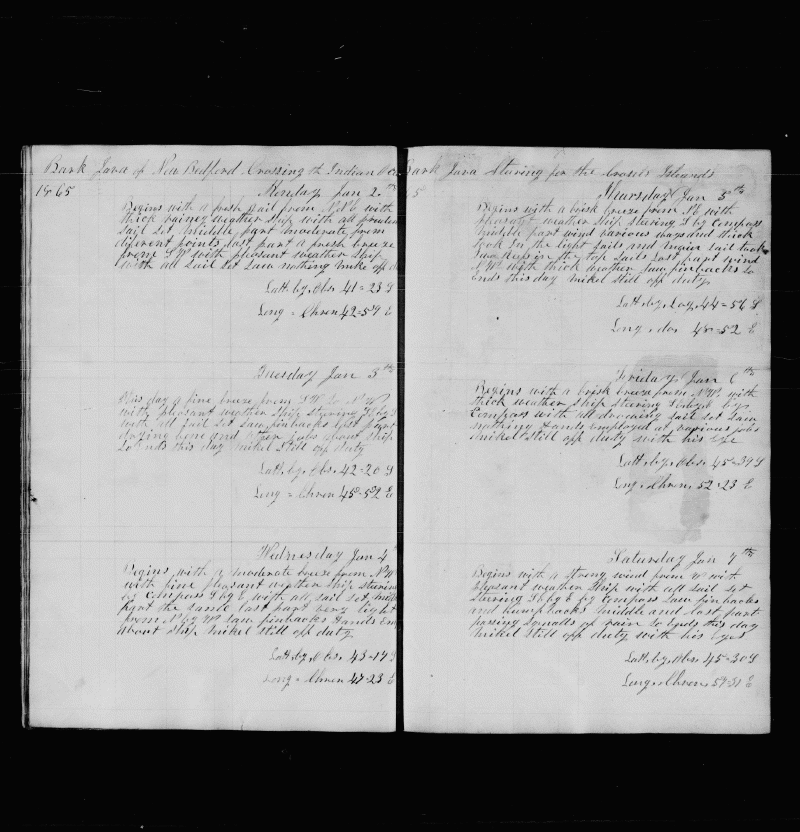 Bark Java of New Bedford Crossing th Indian Oce
1865
Monday Jan 2nd
Begins with a fresh gail from NNE with
thick rainey weather Ship with all
sail set, Middle part moderate from
diferent points last part a fresh breeze
from SW with pleasant weather Ship
with all sail set Saw nothing Mike off d
Latt. by. Obs. 41=23 S
Long = Chron 42=59 E
Tuesday Jan 3th
This day a fine breeze from SW to NW
with pleasant weather Ship Stering SE by S
with all sail set Saw finbacks last part
bone and other jobs about Ship
So Ends this day Mikel still off duty
Latt. by. Obs. 42=20 S
Long = Chron 45=52 E
Wednesday Jan 4
Begins with a moderate breeze from NW
with fine pleasant wether Ship Stering
by Compass S by E, with all sail set mid
part the same last part very light
from N by W Saw finbacks Hands Em
about Ship Mikel still off duty
Latt. by. Obs. 43=19 S
Long = Chron 47=23 E
Bark Java Stering for the Crosets Islands
5
Thursday Jan 5th
Begins with a brisk breeze from NE with
pleasant weather Ship Stering S by Compass
middle part wind various ways and thick
took In the light sails and main sail took
two reefs in the top sails Last part wind
NW with thick weather Saw finbacks So
Ends this day Mikel still off duty
Latt. by. Log. 44=56 S
Long = do. 48=52 E
Friday. Jan 6th
Begins with a brisk breeze from NW. with
thick weather Ship Stering by
Compass with all drawing sail set Saw
nothing Hands Employed at various jobs
Mikel still off duty with his Eye
Latt. by. Obs. 45=39 S
Long = Chron. 52=23 E
Saturday Jan 7th
Begins with a strong wind from W with
pleasant weather Ship with all sail set
stering SE by E by Compass Saw finbacks
and humpbacks Middle and last part
passing squalls of rain So Ends this day
Mikel still off duty with his Eyes
Latt. by. Obs. 45=30 S
Long = Chron. 57=31 E